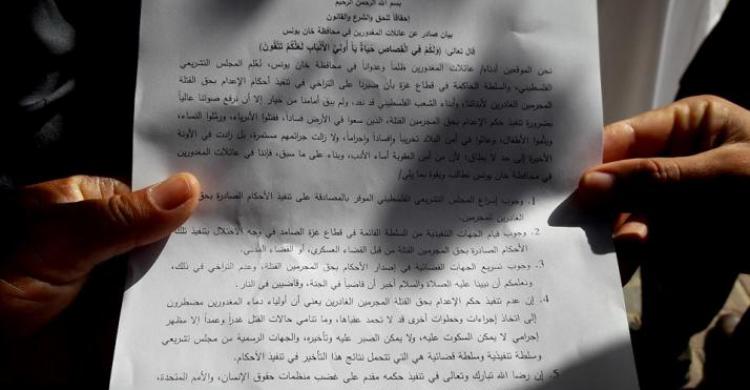 بسم الله الرحمن الرحيم
إحقاقاً للحق والشرع والقانون
بيان صادر عن عائلات المغدورين في محافظة خان يونس
قال تعالى: (وَلَكُمْ فِي الْقِصَاصِ حَيَاةٌ يَا أُولِيْ الأَلْبَابِ لَعَلَّكُمْ تَتَّقُونَ)
نحن الموقعين أدناه/ عائلات المغدورين ظلماً وعدواناً في محافظة خان يونس، نُعْلم المجلس التشريعي
الفلسطيني، والسلطة الحاكمة في قطاع غزة بأن صبرنا على التراخي في تنفيذ أحكام الإعدام بحق القتلة
المجرمين الغادرين لأبنائنا، وأبناء الشعب الفلسطيني قد نفد، ولم يبق أمامنا من خيار إلا أن نرفع صوتنا عالياً
بضرورة تنفيذ حكم الإعدام بحق المجرمين القتلة، الذين سعوا في الأرض فساداً، فقتلوا الأبرياء، ورملوا النساء،
ويتموا الأطفال، وعاثوا في أمن البلاد تخريباً وافساداً واجراماً، ولا زالت جرائمهم مستمرة، بل زادت في الآونة
الأخيرة إلى حد لا يطاق؛ لأن من أمن العقوبة أساء الأدب، وبناء على ما سبق، فإننا في عائلات المغدورين
في محافظة خان يونس نطالب وبقوة بما يلي/
1. وجوب إسراع المجلس التشريعي الفلسطيني الموقر بالمصادقة على تنفيذ الأحكام الصادرة بحق
الغادرين المجرمين.
2. وجوب قيام الجهات التنفيذية من السلطة القائمة في قطاع غزة الصامد في وجه الاحتلال بتنفيذ تلك
الأحكام الصادرة بحق المجرمين القتلة من قبل القضاء العسكري، أو القضاء المدني.
3. وجوب تسريع الجهات القضائية في إصدار الأحكام بحق المجرمين القتلة، وعدم التراخي في ذلك،
ونعلمكم أن نبينا عليه الصلاة والسلام أخبر أن قاضياً في الجنة، وقاضيين في النار.
4. إن عدم تنفيذ حكم الإعدام بحق القتلة المجرمين الغادرين يعني أن أولياء دماء المغدورين مضطرون
إلى اتخاذ إجراءات وخطوات أخرى قد لا تحمد عقباها، وما تنامي حالات القتل غدراً وعمداً إلا مظهر
إجرامي لا يمكن السكوت عليه، ولا يمكن الصبر عليه وتأخيره، والجهات الرسمية من مجلس تشريعي
وسلطة تنفيذية وسلطة قضائية هي التي تتحمل نتائج هذا التأخير في تنفيذ الأحكام.
5. إن رضا الله تبارك وتعالى في تنفيذ حكمه مقدم على غضب منظمات حقوق الإنسان، والأمم المتحدة،